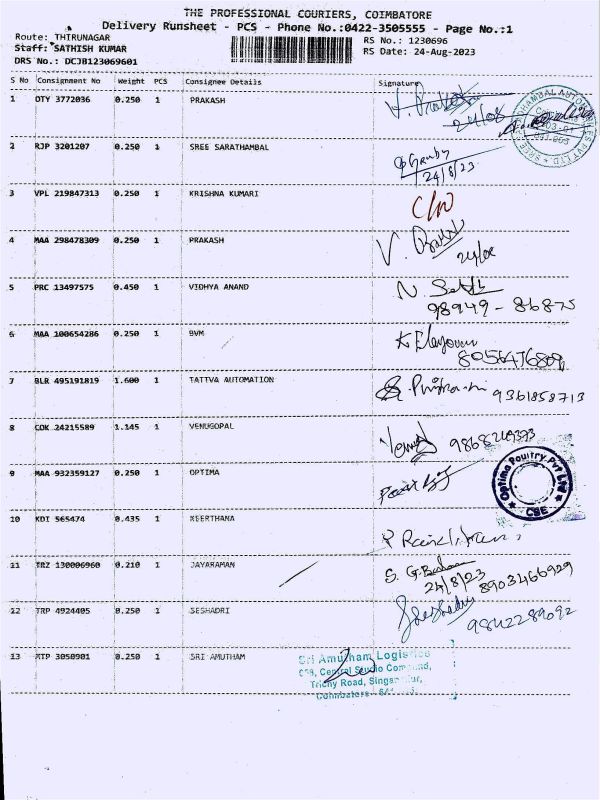 THE PROFESSIONAL COURIERS, COIMBATORE
Delivery Runsheet - PCS - Phone No.:0422-3505555 - Page No.:1
Route: THIRUNAGAR RS No.: 1230696
Staff: SATHISH KUMAR RS Date: 24-Aug-2023
DRS No.: DCJB123069601
S No Consignment No Weight PCS Consignee Details Signature
1 OTY 3772036 0.250 1 PRAKASH
24/08
2 RJP 3201207 0.250 1 SREE SARATHAMBAL
24/8/23
3 VPL 219847313 0.250 1 KRISHNA KUMARI
4 MAA 298478309 0.250 1 PRAKASH V.
24/08
5 PRC 13497575 0.450 1 VIDHYA ANAND N.
98949 - 86875
6 MAA 100654286 0.250 1 BVM K
7 BLR 495191819 1.600 1 TATTVA AUTOMATION 9361858713
8 COK 24215589 1.145 1 VENUGOPAL
9 MAA 932359127 0.250 1 OPTIMA
Optima Poultry Pvt Ltd
CBE
10 KDI 565474 0.435 1 KEERTHANA
11 TRZ 130006960 0.210 1 JAYARAMAN S.
24/8/23 8903466929
12 TRP 4924405 0.250 1 SESHADRI Seshadri 9842289092
13 KTP 3050901 0.250 1 SRI AMUTHAM
Sri Amutham Logistics
Central Studio Compound,
Trichy Road, Singanallur,
Coimbatore